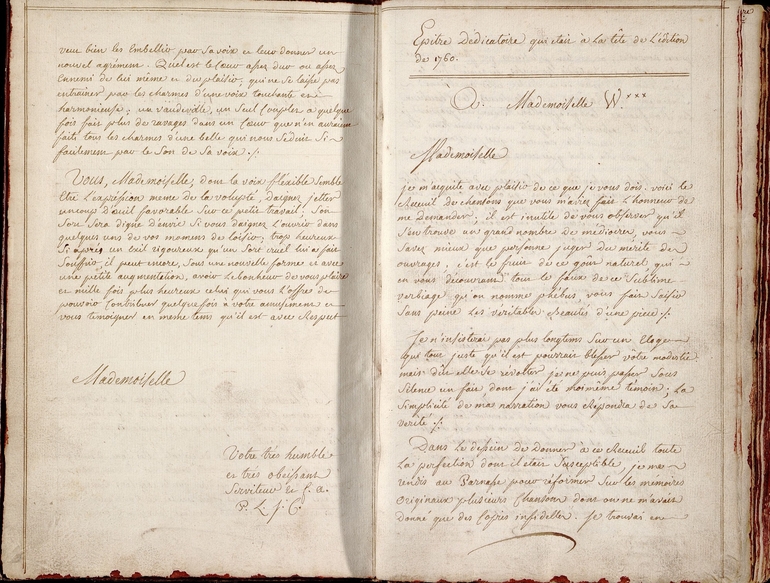 veut bien les Embellir par Sa voix et leur donner un
nouvel agrément. Quel est le Cœur assez dur ou assez
Ennemi de lui même et du plaisir, qui ne Se laisse pas
entrainer par les charmes d'une voix touchante et
harmonieuse; un vaudeville, un Seul Couplet a quelque
fois fait plus de ravages dans un Cœur que n'en auraient
faits tous les charmes d'une belle qui nous Séduit Si
facilement par le Son de Sa voix ./.
Vous, Mademoiselle, dont la voix flexible Semble
Etre l'expression meme de la volupté, daignez jetter
un coup d'œuil favorable Sur ce petit travail; Son
Sort Sera digne d'envie Si vous daignez l'ouvrir dans
quelques uns de vos momens de loisir; trop heureux
Si après un Exil rigoureux qu'un Sort cruel lui a fait
Souffrir, il peut encore, Sous une nouvelle forme et avec
une petite augmentation, avoir le bonheur de vous plaire
et mille fois plus heureux celui qui vous l'offre de
pouvoir Contribuer quelque fois à votre amusement et
vous témoigner en meme tems qu'il est avec Respect
Mademoiselle
Votre très humble
et très obéissant
Serviteur
P. L. J. C.
Epitre Dédicatoire qui etait à la tête de L'édition
de 1760.
A. Mademoiselle W.xxx
Mademoiselle
je m'aquite avec plaisir de ce que je vous dois. voici le
Recueil de chansons que vous m'aviez fait L'honneur de
me Demander; il est inutile de vous observer qu'il
S'en trouve un grand nombre de médiocres, vous
Savez mieux que personne juger du mérite des
ouvrages, c'est le fruit de ce goût naturel qui
en vous découvrant tout le faux de ce Sublime
verbiage qu'on nomme phébus, vous fait Saisir
Sans peine les véritables Beautés d'une pièce ./.
Je n'insisterai pas plus longtems Sur un Eloge
qui tout juste qu'il est pourrait blesser vôtre modestie
mais dut elle Se révolter je ne puis passer Sous
Silence un fait dont j'ai été moi même témoin; La
Simplicité de ma narration vous Répondra de Sa
verité ./.
Dans Le dessein de Donner a ce Recueil toute
La perfection dont il était Susceptible, je me
rendis au Parnasse pour réformer Sur les mémoires
originaux plusieurs Chansons dont on ne m'avait
donné que des Copies infidelles. Je trouvai en